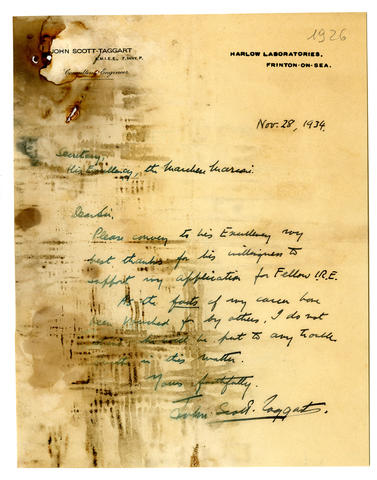 1926
JOHN SCOTT-TAGGART
Consultant Engineer
HARLOW LABORATORIES,
FRINTON-ON-SEA.
Nov. 28, 1934.
Secretary,
His Excellency, the Marchese Marconi.
Dear Sir,
Please convey to his Excellency my
best thanks for his willingness to
support my application for Fellow I.R.E.
As the facts of my career have
been vouched for by others. I do not
will be put to any trouble
in this matter.
Yours faithfully.
John Scott-Taggart.